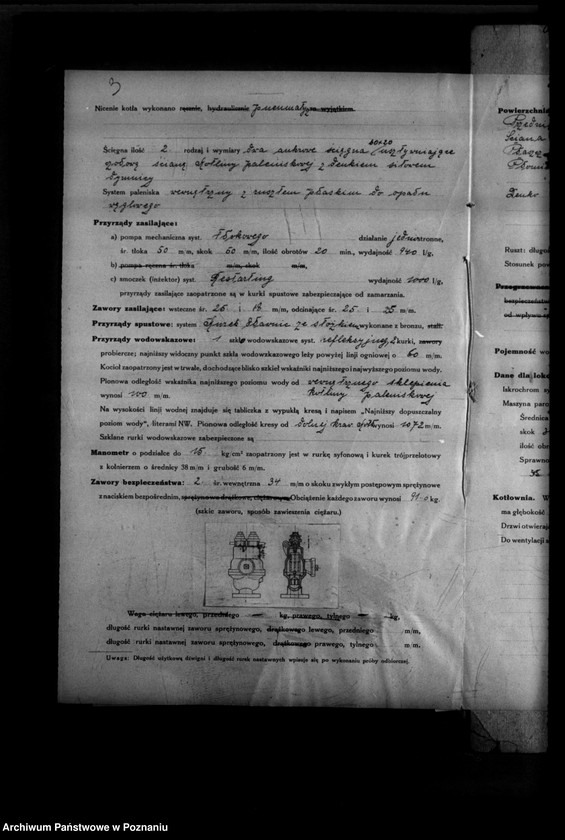 3
Nicenie kotła wykonano ręcznie, hydraulicznie
60×20
Ścięgna ilość 2 rodzaj i wymiary dwa ankrowe ścięgna usztywniające
ścianę paleniskowej z denkiem sitowem
dymnicy
System paleniska wewnętrzny z rusztem płaskim do opału
węglowego
Przyrządy zasilające:
a) pompa mechaniczna syst. tłokowego działanie jednostronne,
śr. tłoka 50 m/m, skok 60 m/m, ilość obrotów 20 min., wydajność 940 l/g,
b) pompa ręczna śr. tłoka m/m, skok m/m,
c) smoczek (inżektor) syst. Restarting wydajność 1000 l/g,
przyrządy zasilające zaopatrzone są w kurki spustowe zabezpieczające od zamarzania.
Zawory zasilające: wsteczne śr. 25 i m/m, odcinające śr. 25 i 25 m/m.
Przyrządy spustowe: system ze wykonane z bronzu, stali.
Przyrządy wodowskazowe: 1 szkło wodowskazowe syst. refleksyjny, 2 kurki, zawory
probiercze; najniższy widoczny punkt szkła wodowskazowego leży powyżej linji ogniowej o 60 m/m.
Kocioł zaopatrzony jest w trwałe, dochodzące blisko szkieł wskaźniki najniższego i najwyższego poziomu wody.
Pionowa odległość wskaźnika najniższego poziomu wody od wewnętrznego sklepienia
wynosi 100 m/m. paleniskowej
Na wysokości linji wodnej znajduje się tabliczka z wypukłą kresą i napisem „Najniższy dopuszczalny
poziom wody", literami NW. Pionowa odległość kresy od dolnej wynosi 1072 m/m.
Szklane rurki wodowskazowe zabezpieczone są
Manometr o podziałce do 15 kg/cm² zaopatrzony jest w rurkę syfonową i kurek trójprzelotowy
z kołnierzem o średnicy 38 m/m i grubość 6 m/m.
Zawory bezpieczeństwa: 2 śr. wewnętrzna 34 m/m o skoku zwykłym postępowym sprężynowe
z naciskiem bezpośrednim, Obciążenie każdego zaworu wynosi kg.
(szkic zaworu, sposób zawieszenia ciężaru.)
Waga ciężaru lewego, przedniego kg, prawego, tylnego kg,
długość rurki nastawnej zaworu sprężynowego, drążkowego lewego, przedniego m/m,
długość rurki nastawnej zaworu sprężynowego, drążkowego prawego, tylnego m/m.
Uwaga: Długość użytkową dźwigni i długość rurek nastawnych wpisuje się po wykonaniu próby odbiorczej.
Powierzchnia
Ściana
Denko
Ruszt: długoś
Stosunek pow
bezpieczeństw
od wpływu
Pojemność wo
Dane dla lok
Iskrochron sy
Maszyna par
Średnica
skok
ilość obr
Sprawno
Kotłownia. W
ma głębokość
Drzwi otwieraj
Do wentylacji s
Archiwum Państwowe w Poznaniu